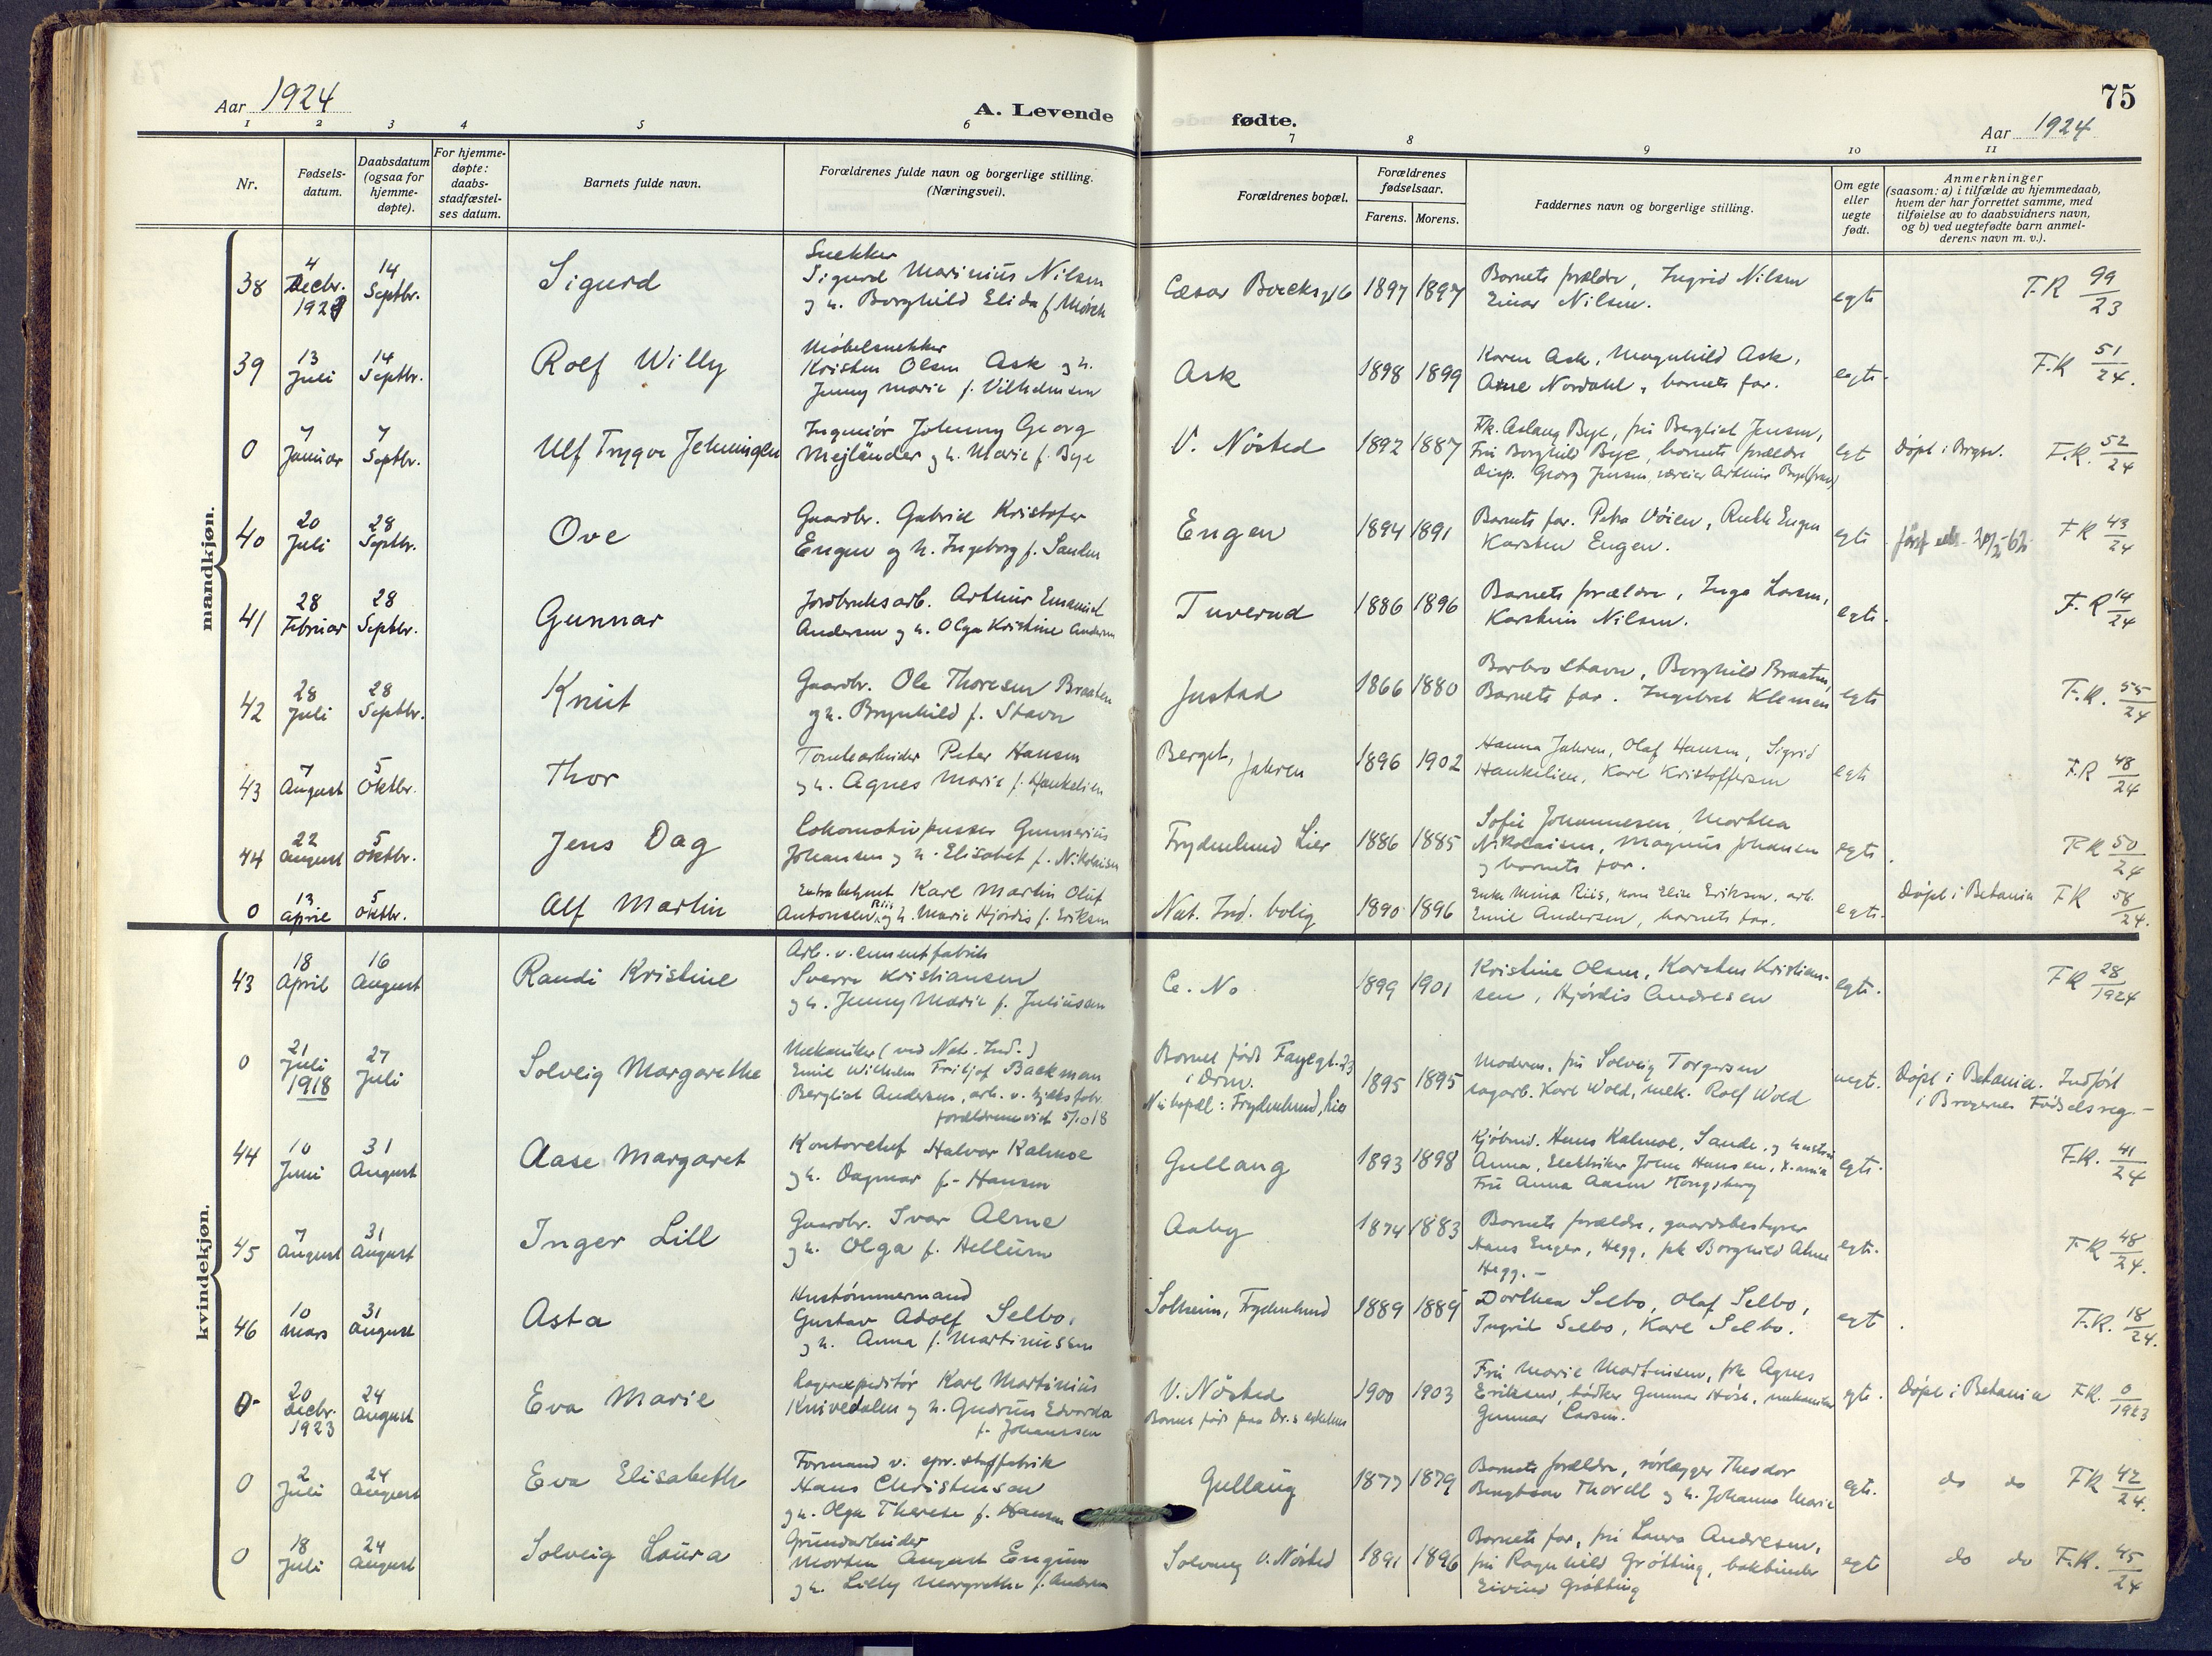 Aar 1924
A. Levende
fødte.
75
Aar 1924
1 2 3 4 5 6 7 8 9 10 11
Nr.
Fødsels-
datum.
Daabsdatum
(ogsaa for
hjemme-
døpte).
For hjemme-
døpte:
daabs-
stadfæstel-
ses datum.
Barnets fulde navn.
Forældrenes fulde navn og borgerlige stilling.
(Næringsvei).
Forældrenes bopæl.
Forældrenes
fødselsaar.
Farens. Morens.
Faddernes navn og borgerlige stilling.
Om egte
eller
uegte
født.
Anmerkninger
(saasom: a) i tilfælde av hjemmedaab,
hvem der har forrettet samme, med
tilføielse av to daabsvidners navn,
og b) ved uegtefødte barn anmel-
derens navn m. v.).
mandkjøn.
38
4
Decbr.
14
Septbr.
Sigurd
Snekker
Sigurd Marinius Nilsen
og h. Borghild Elida f. Mørch
1897 1897
Barnets forældre, Ingrid Nilsen
Einar Nilsen.
egte
F.R 99/23
39
13
Juli
14
Septbr.
Rolf Willy
Møbelsnekker
Kristen Olsen Ask og h.
Jenny Marie f. Vilhelmsen
Ask
1898 1899
Karen Ask, Magnhild Ask,
Arne Nordahl, barnets far.
egte.
F.R 51/24.
0
7
Januar
7
Septbr.
Ulf Trygve
Ingeniør Johnny Georg
Mejländer og h. Marie f. Bye
V. Nøsted
1892 1887
Frk. Aslaug Bye, fru Bergliot Jensen,
Fru Borghild Bye, barnets forældre
Disp. Georg Jensen,
egt
Døpt i Bragen.
F.R. 52/24
40
20
Juli
28
Septbr.
Ove
Gaardbr. Gabriel Kristofer
Engen og h. Ingeborg f. Sanden
Engen
1894 1891
Barnets far. Petra Vöien, Ruth Engen
Karsten Engen.
egte
F R 43/24
41
28
Februar
28
Septbr.
Gunnar
Jordbruksarb. Arthur Emanuel
Andersen og h. Olga Kristine Andersen
Tuverud
1886 1896
Barnets forældre, Inga Larsen,
Karstein Nilsen.
egte.
F.R 14/24
42
28
Juli
28
Septbr.
Knut
Gaardbr. Ole Thoresen Braaten
og h. Brynhild f. Stavn
Justad
1866 1880
Barbro Stavn, Borghild Braaten,
Barnets far. Ingebret Klemen
egte
F.R. 55/24
43
7
August
5
Oktbr.
Thor
Tomtearbeider Peter Hansen
og h. Agnes Marie f. Haukelien
Berget, Jahren
1896 1902
Hanna Jahren, Olaf Hansen, Sigrid
Haukelien, Karl Kristoffersen
egte
F.R 48/24
44
22
August
5
Oktbr.
Jens Dag
Lokomotivpusser Gunnerius
Johansen og h. Elisabet f. Nikolaisen
Frydenlund Lier
1886 1885
Sofie Johannesen, Marthea
Nikolaisen, Magnus Johansen
og barnets far.
egte.
F R 50/24
0
13
April
5
Oktbr.
Alf Martin
Extrabetjent Karl Martin Oluf
Antonsen Riis og h. Marie Hjørdis f. Eriksen
Nat. Ind. bolig
1890 1896
Enke Mina Riis, kone Elise Eriksen, arb.
Emil Andersen, barnets far.
egte.
Døpt i Betania
F R 58/24.
kvindekjøn.
43
18
April
16
August
Randi Kristine
Arb. v. cementfabrik
Sverre Kristiansen
og h. Jenny Marie f. Juliussen
Ce. No
1899 1901
Kristine Olsen, Karsten Kristian-
sen, Hjørdis Andresen
egte.
F R 28/1924
0
21
Juli
1918
27
Juli
Solveig Margarethe
Mekaniker (ved Nat. Ind.)
Emil Wilhelm Fritjof Backman
Bergliot Andersen, arb. v.
forældrene viet 5/10 18
Barnet født
i Drm.
Nu bopæl: Frydenlund, Lier
1895 1895
Moderen, fru Solveig Torgersen
sagarb. Karl Wold, mek. Rolf Wold
uegt.
Døpt i Betania. Indført
i Bragernes Fødselsreg.-
44
10
Juni
31
August
Aase Margaret
Kontorchef Halvor Kalmoe
og h. Dagmar f. Hansen
Gullaug
1893 1898
Kjøbmd. Hans Kalmoe, Sande, og hustru
Anna, Elektriker John Hansen, X.ania
Fru Anna Aasen Kongsberg
egte.
F.R. 41/24
45
7
August
31
August
Inger Lill
Gaardbr. Ivar Alme
og h. Olga f. Hellum
Aaby
1874 1883
Barnets forældre, gaardsbestyrer
Hans Enger, Hegg, frk Borghild Alme
Hegg.-
egte.
F R 48/24.
46
10
Mars
31
August
Asta
Hustømmermand
Gustav Adolf Selbo,
og h. Anna f. Martiniussen
Solheim, Frydenlund
1889 1889
Dorthea Selbo, Olaf Selbo,
Ingrid Selbo, Karl Selbo.
egt.
F.R. 18/24.
0
20
Decbr.
1923
24
August
Eva Marie
Lagerexpeditør Karl Martinius
Knivedalen og h. Gudrun Edvarda
f. Johanssen
V. Nøsted
Barnet født paa Dr.s sykehus
1900 1903
Fru Marie Martinsen, frk Agnes
Eriksen, bødker Gunnar Höst, mekaniker
Gunnar Larsen.
egte.
Døpt i Betania
F.R. 0/1923
0
2
Juli
24
August
Eva Elisabeth
Formand v. spr.stoffabrik
Hans Christensen
og h. Olga Therese f. Hansen
Gullaug
1877 1879
Barnets forældre, rørlægger Theodor
Bengtson Thorell og h. Johanna Marie
egte.
do do
F R 42/24.
0
18
Juli
24
August
Solveig Laura
Grundarbeider
Morten August Engum
og h. Lilly Margrethe f. Andresen
Solvang V. Nøsted
1891 1896
Barnets far, fru Laura Andresen,
fru Ragnhild Grøtting, bokbinder
Eivind Grøtting
egt
do do
F.R. 45/24